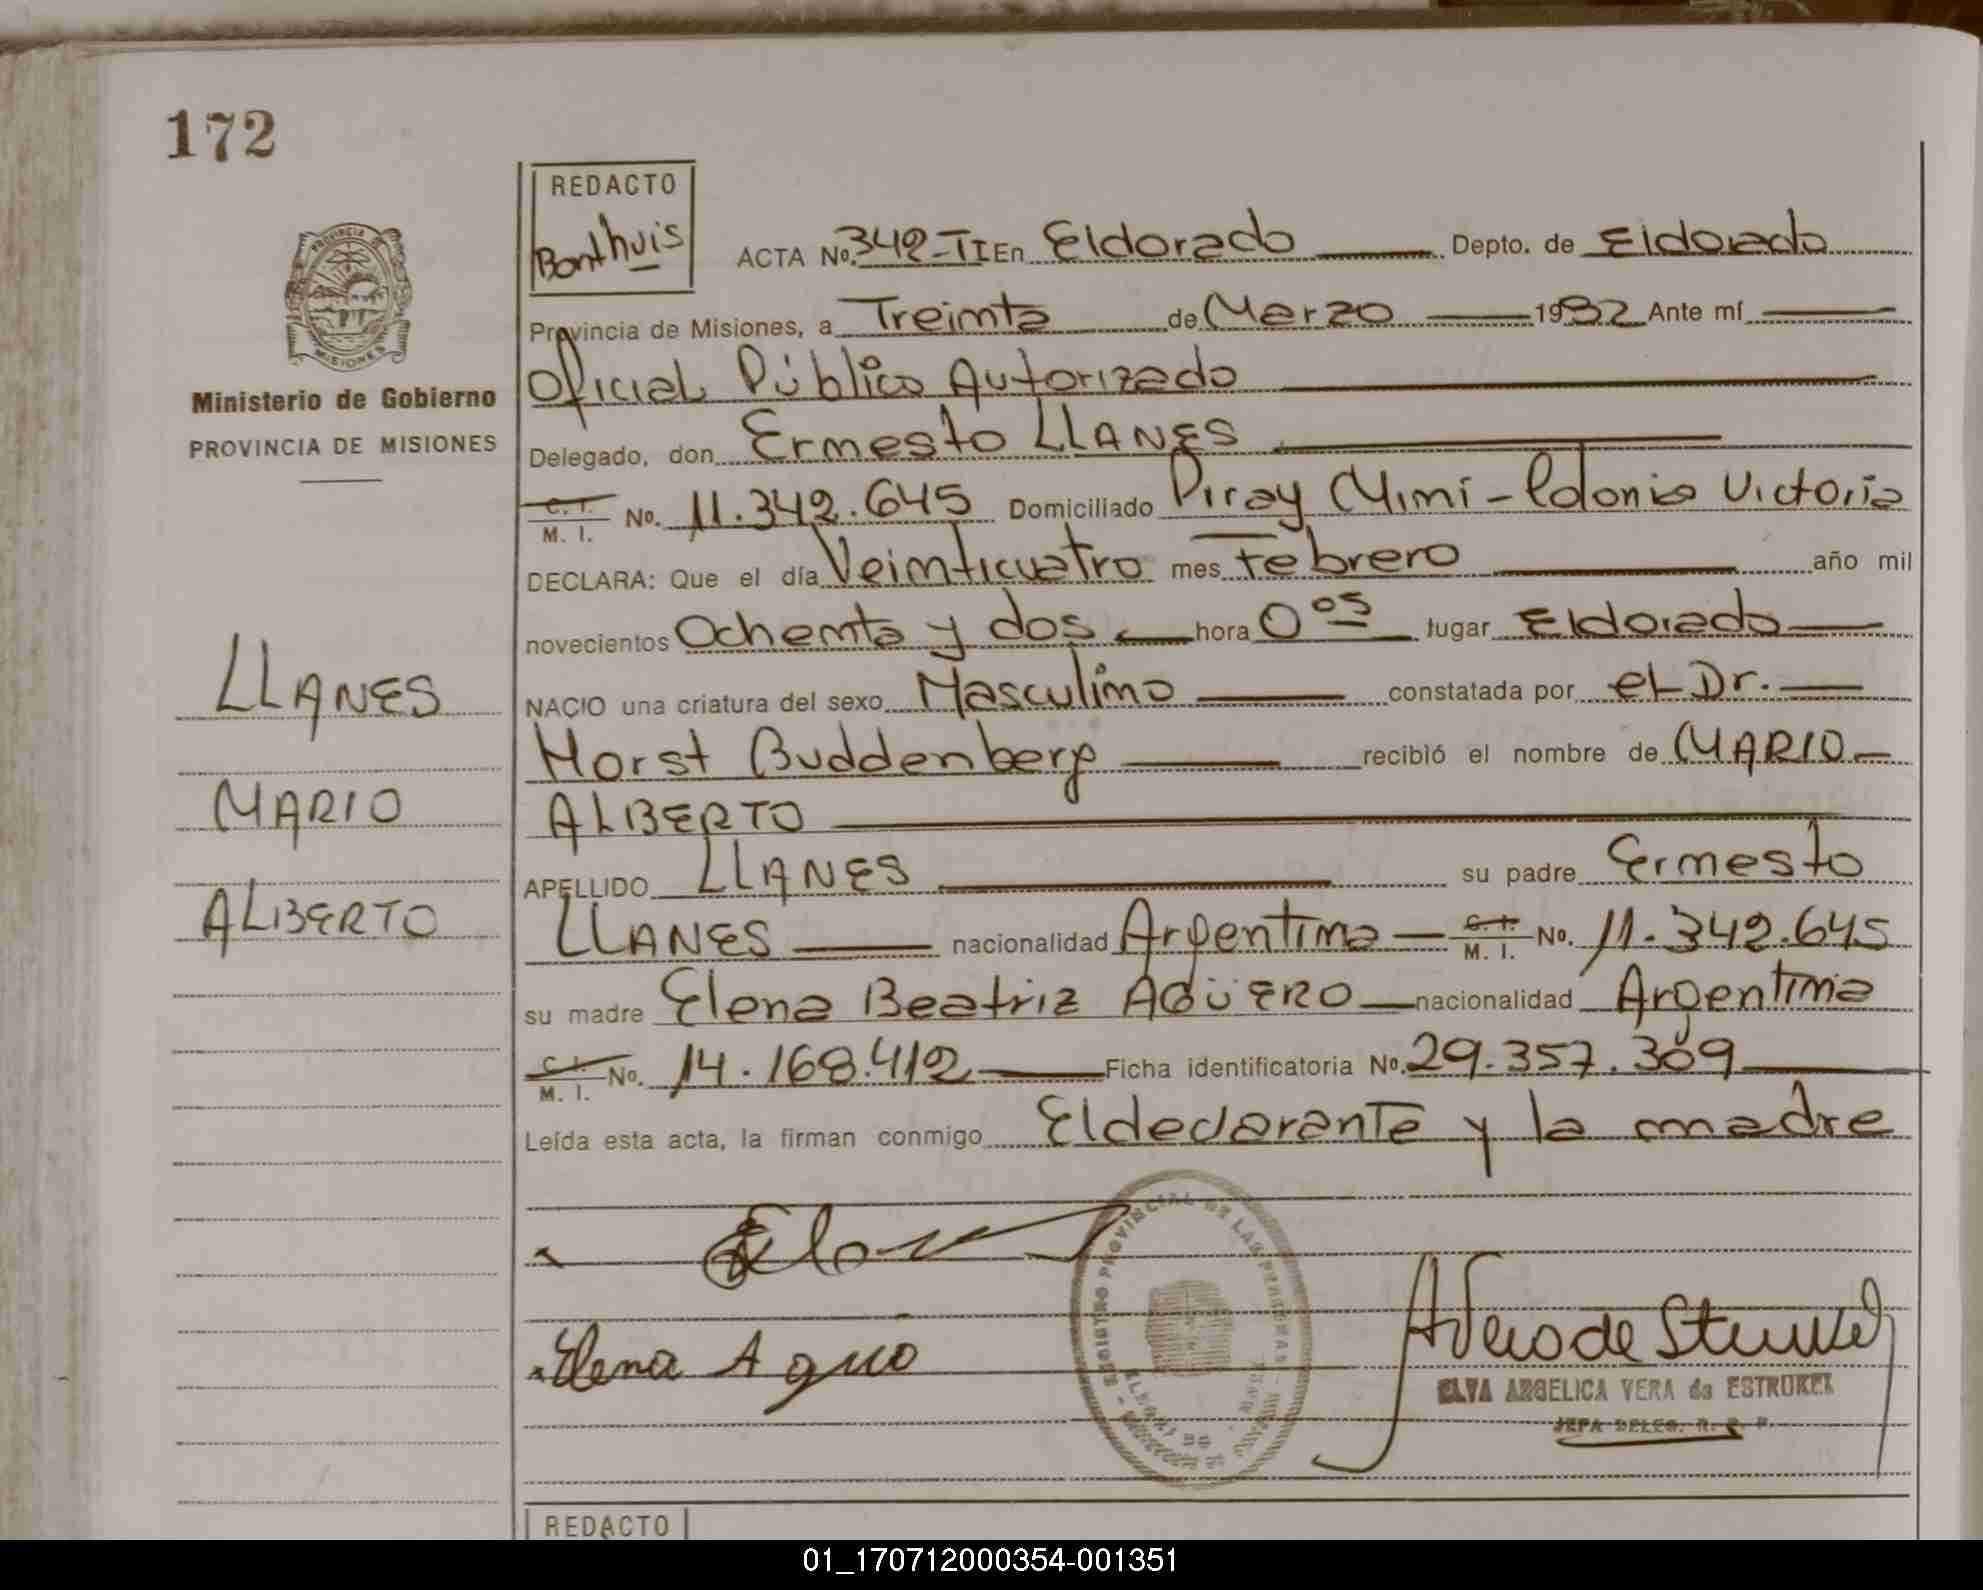 172
REDACTO
Bonthuis
ACTA No. 342-TI En Eldorado Depto. de Eldorado
Provincia de Misiones, a Treinta de Marzo 1982 Ante mí
Oficial Público Autorizado
Delegado, don Ernesto LLANES
C. I. M. I. No. 11.342.645 Domiciliado Piray Mini - Colonia Victoria
DECLARA: Que el día Veinticuatro mes Febrero año mil
novecientos Ochenta y dos hora 0 05 lugar Eldorado
NACIO una criatura del sexo Masculino constatada por el Dr.
Horst Buddenberg recibió el nombre de MARIO
ALBERTO
APELLIDO LLANES su padre Ernesto
LLANES nacionalidad Argentina C. I. M. I. No. 11.342.645
su madre Elena Beatriz AGÜERO nacionalidad Argentina
C. I. M. I. No. 14.168.412 Ficha identificatoria No. 29.357.309
Leída esta acta, la firman conmigo El declarante y la madre
PROVINCIA DE
MISIONES
Ministerio de Gobierno
PROVINCIA DE MISIONES
LLANES
MARIO
ALBERTO
Elena Aguero
REGISTRO PROVINCIAL DE LAS PERSONAS
ELVA ANGELICA VERA de ESTRUKEL
JEFA DELEG. R. P. P.
REDACTO
01_170712000354-001351